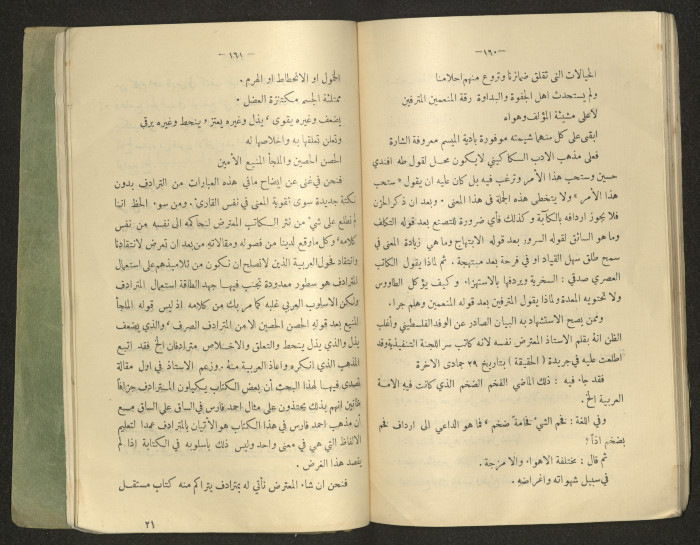 — ١٦٠ —
الخيالات التي تقلق ضمائرنا وتروع منهم احلامنا
ولم يستحدث اهل الجفوة والبداوة رقة المنعمين المترفين
لاعلى مشيئة المؤلف وهواه
ابقى على كل منهما شيمته موفورة بادية الميسم معروفة الشارة
فعلى مذهب الادب السكاكيني لايكون محل لقول طه افندي
حسين ونحب هذا الأمر ونرغب فيه بل كان عليه ان يقول «ستحب
هذا الأمر» ولا يتخطى هذه الجملة في هذا المعنى. وبعد ان ذكر الحزن
فلا يجوز اردافه بالكآبة وكذلك فأي ضرورة للتصنع بعد قوله التكلف
وما هو السائق لقوله السرور بعد قوله الابتهاج وما هي زيادة المعنى في
سمح طلق سهل القياد او في فرحة بعد مبتهجة. ثم لماذا يقول الكاتب
العصري صدقي: السخرية ويردفها بالاستهزاء وكيف يؤكل الطاووس
ولا تحتويه المعدة ولماذا يقول المترفين بعد قوله المنعمين وهلم جراء.
وممن يصح الاستشهاد به البيان الصادر عن الوفد الفلسطيني وأغلب
الظن انه بقلم الاستاذ المعترض نفسه لانه كاتب سر اللجنة التنفيذية وقد
اطلعت عليه في جريدة (الحقيقة) بتاريخ ٢٩ جمادى الآخرة
فقد جاء فيه: ذلك الماضي الفخم الضخم الذي كانت فيه الامة
العربية الخ.
وفي اللغة: فخم الشيء فخامة ضخم، فما هو الداعي الى ارداف فخم
بضخم اذاً؟
ثم قال: مختلفة الاهواء والامزجة.
في سبيل شهواته واغراضه.
— ١٦١ —
الخمول او الانحطاط او الهرم.
ممتلئة الجسم مكتنزة العضل.
يضعف وغيره يقوى، يذل وغيره يعتز، ينحط وغيره يرقي
وتعلن تعلقها به واخلاصها له
الحصن الحصين والملجأ المنيع الأمين
فنحن في غنى عن ايضاح مافي هذه العبارات من الترادف بدون
نكتة جديدة سوى تقوية المعنى في نفس القارئ. ومن سوء الحظ اننا
لم نطلع على شيء من نثر الكاتب المعترض لنحاكمه الى نفسه من نفس
كلامه وكل ما وقع لدينا من فصوله ومقالاته من بعد ان تعرض لانتقادنا
وانتقاد فحول العربية الذين لانصلح ان نكون من تلاميذهم على استعمال
المترادف هو سطور معدودة تجنب فيها جهد الطاقة استعمال المترادف
ولكن الاسلوب العربي غلبه كما مر بك من كلامه اذ ليس قوله الملجأ
المنيع بعد قوله الحصن الحصين الا من المترادف الصرف، والذي يضعف
يذل والذي يذل ينحط والتعلق والاخلاص مترادفان الخ فقد اتبع
المذهب الذي انكره واعاذ العربية منه. وزعم الاستاذ في اول مقالة
تصدى فيها لهذا البحث أن بعض الكتاب يكيلون المترادف جزافاً
ظانين انهم بذلك يحتذون على مثال احمد فارس في الساق على الساق مع
أن مذهب احمد فارس في هذا الكتاب هو الأتيان بالمترادف عمداً لتعليم
الالفاظ التي هي في معنى واحد وليس ذلك باسلوبه في الكتابة إذا لم
يقصد هذا الغرض.
فنحن ان شاء المعترض نأتي له بمترادف يتراكم منه كتاب مستقل
٢١